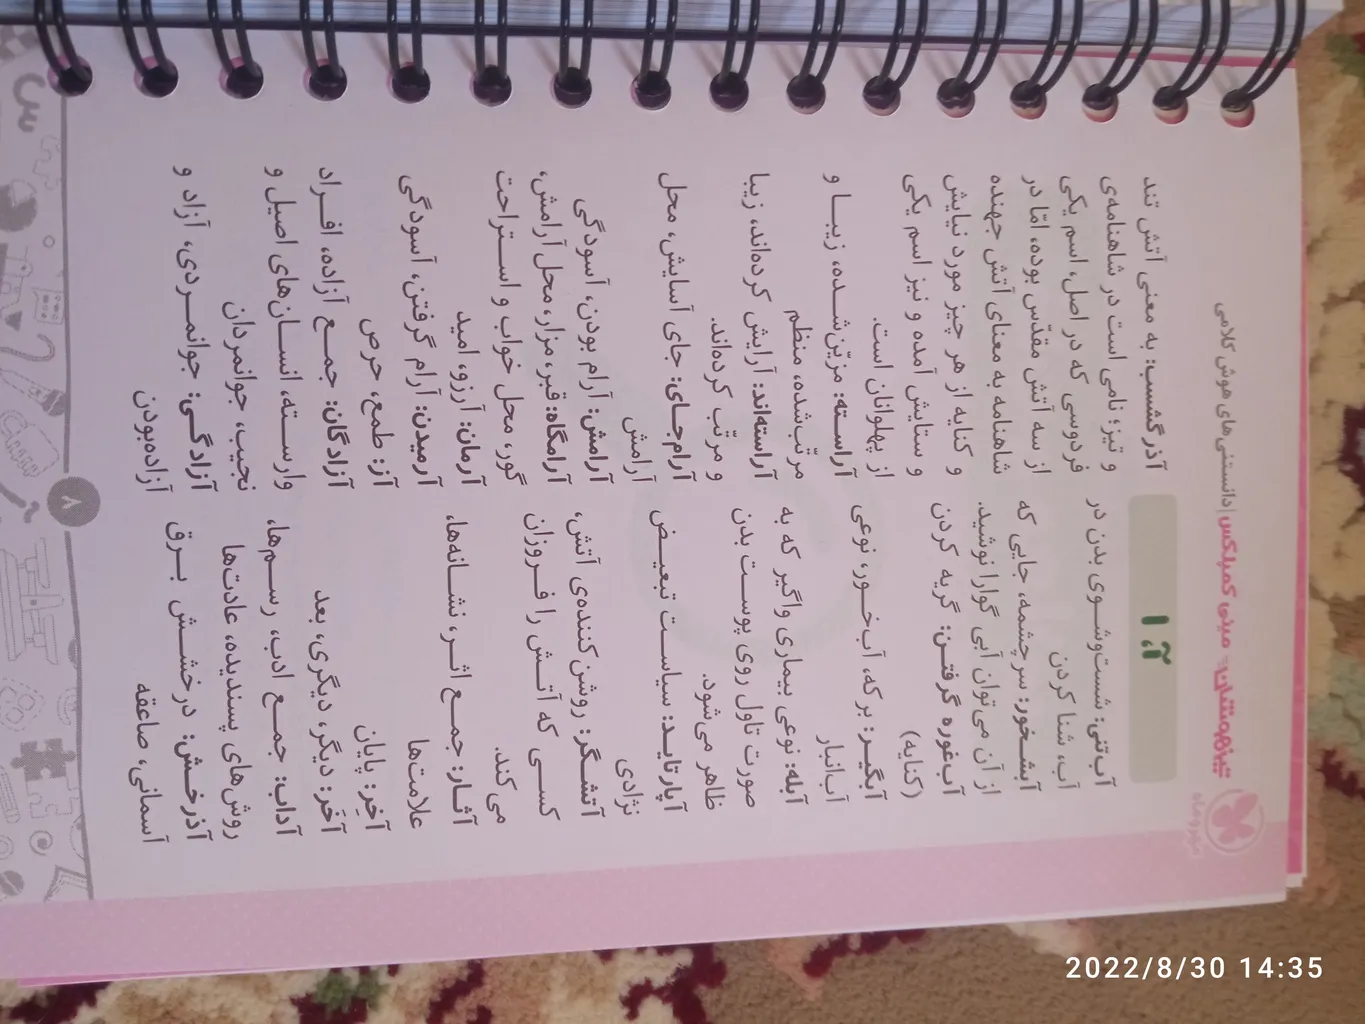 تیزهوشان مینی کمپلکس | دانستنی‌های هوش کلامی
مهروماه
آ، ا
آب‌تنی: شست‌وشوی بدن در
آب، شنا کردن
آبشخور: سرچشمه، جایی که
از آن می‌توان آبی گوارا نوشید.
آب‌غوره گرفتن: گریه کردن
(کنایه)
آبگیر: برکه، آب‌خور، نوعی
آب‌انبار
آبله: نوعی بیماری واگیر که به
صورت تاول روی پوست بدن
ظاهر می‌شود.
آپارتاید: سیاست تبعیض
نژادی
آتشگر: روشن‌کننده‌ی آتش،
کسی که آتش را فروزان
می‌کند.
آثار: جمع اثر، نشانه‌ها،
علامت‌ها
آخِر: پایان
آخَر: دیگر، دیگری، بعد
آداب: جمع ادب، رسم‌ها،
روش‌های پسندیده، عادت‌ها
آذرخش: درخشش برق
آسمانی، صاعقه
آذرگشسب: به معنی آتش تند
و تیز؛ نامی است در شاهنامه‌ی
فردوسی که در اصل، اسم یکی
از سه آتش مقدّس بوده، امّا در
شاهنامه به معنای آتش جهنده
و کنایه از هر چیز مورد نیایش
و ستایش آمده و نیز اسم یکی
از پهلوانان است.
آراسته: مزیّن‌شده، زیبا و
مرتّب‌شده، منظم
آراسته‌اند: آرایش کرده‌اند، زیبا
و مرتّب کرده‌اند.
آرام‌جای: جای آسایش، محل
آرامش
آرامش: آرام بودن، آسودگی
آرامگاه: قبر، مزار، محل آرامش،
گور، محل خواب و استراحت
آرمان: آرزو، امید
آرمیدن: آرام گرفتن، آسودگی
آز: طمع، حرص
آزادگان: جمع آزاده، افراد
وارسته، انسان‌های اصیل و
نجیب، جوانمردان
آزادگی: جوانمردی، آزاد و
آزاده‌بودن
۸
2022/8/30 14:35